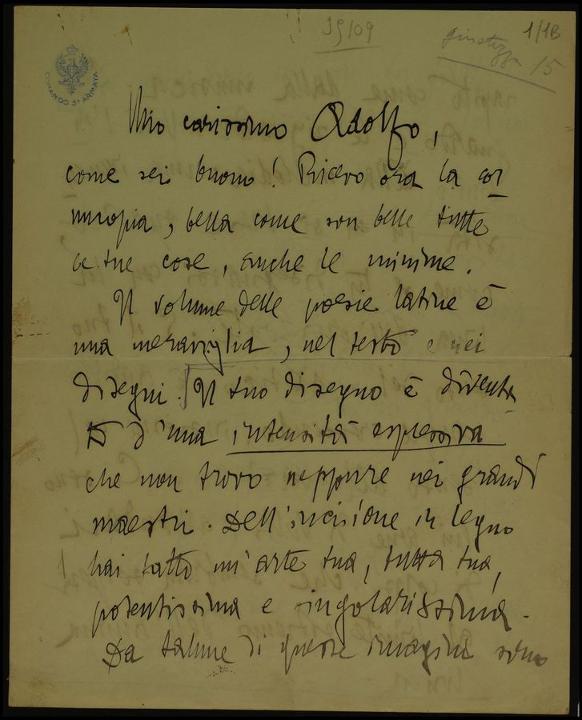 39109
1/1B
15
COMANDO 3ª ARMATA
Mio carissimo Adolfo,
come sei buono! Ricevo ora la cor
nucopia, bella come son belle tutte
le tue cose, anche le minime.
Il volume delle poesie latine è
una meraviglia, nel testo e nei
disegni. Il tuo disegno è diventa
to d'una intensità espressiva
che non trovo neppure nei grandi
maestri. Dell'incisione in legno
hai fatto un'arte tua, tutta tua,
potentissima e singolarissima.
Da talune di queste imagini sono